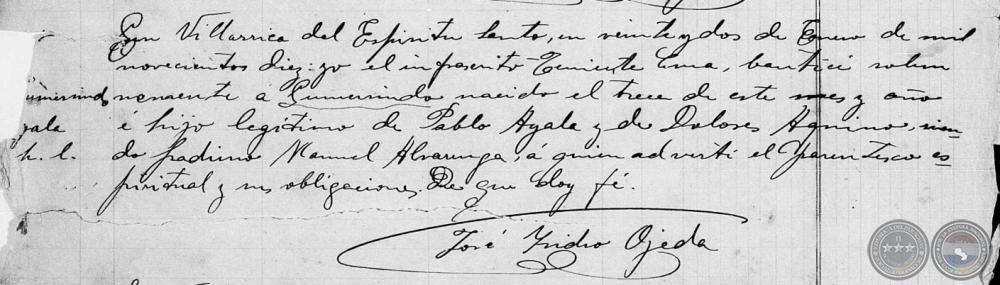 En Villarrica del Espiritu Santo, en veinte y dos de Enero de mil
novecientos diez: yo el infrascrito Teniente Cura, bauticé solem
umersindo nemente á Gumersindo nacido el trece de este mes y año
yala é hijo legítimo de Pablo Ayala y de Dolores Aquino, sien
h. l. do padrino Manuel Alvarenga, á quien advertí el parentesco es
piritual y sus obligaciones. De que doy fé.
José Ysidro Ojeda